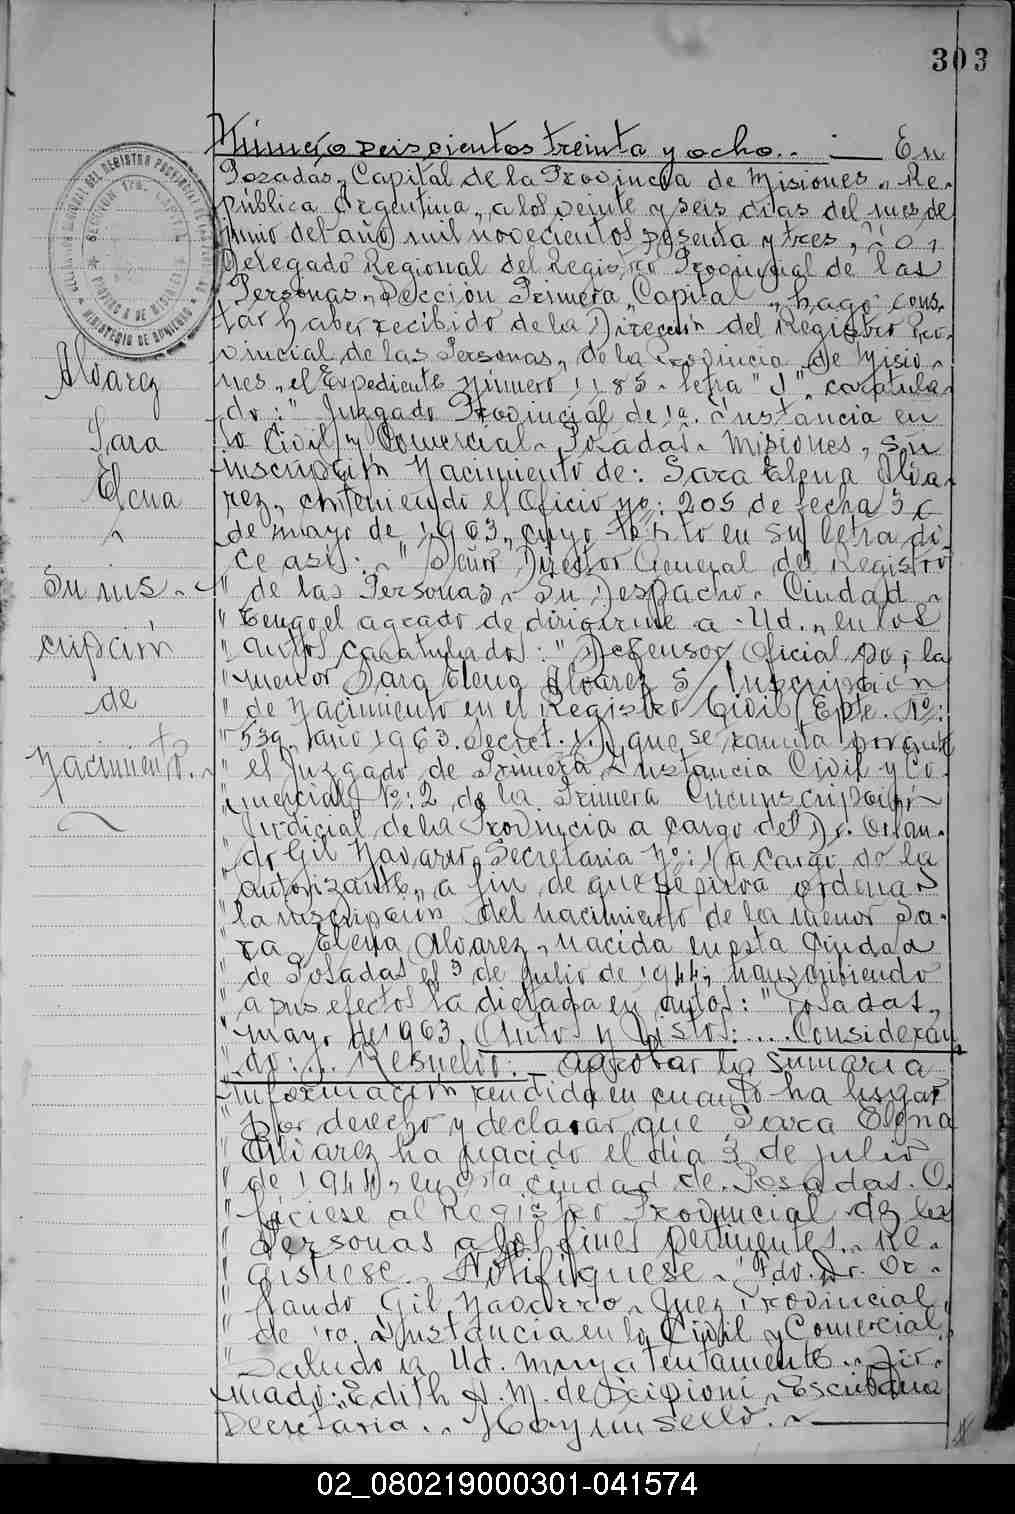 303
Número seiscientos treinta y ocho.. — En
Posadas, Capital de la Provincia de Misiones, Re-
pública Argentina, a los veinte y seis días del mes de
junio del año mil novecientos sesenta y tres, Yo,
Delegado Regional del Registro Provincial de las
Personas, Sección Primera, Capital, hago cons-
tar haber recibido de la Dirección del Registro Pro-
vincial de las Personas, de la Provincia de Misio-
nes, el Expediente Número 1185 - letra "J", caratula-
do: "Juzgado Provincial de 1a. Instancia en
lo Civil y Comercial - Posadas - Misiones, s/n
inscripción Nacimiento de: Sara Elena Alva-
rez, conteniendo el Oficio no: 205 de fecha 30
de mayo de 1963, cuyo texto en su letra di-
ce así: - "Señor Director General del Registro
" de las Personas - Su Despacho - Ciudad -
" Tengo el agrado de dirigirme a Ud., en los
" autos caratulados: "Defensor Oficial por la
" menor Sara Elena Alvarez S/ Inscripción
" de Nacimiento en el Registro Civil (Epte. No:
" 539, año 1963. Secret. 1.), que se tramita por ante
" el Juzgado de Primera Instancia Civil y Co-
" mercial No: 2 de la Primera Circunscripción
" Judicial de la Provincia a cargo del Dr. Orlan-
" do Gil Navarro, Secretaria No: 1 a cargo de la
" autorizante, a fin de que se sirva ordenar
" la inscripción del nacimiento de la menor Sa-
" ra Elena Alvarez, nacida en esta Ciudad
" de Posadas el 3 de julio de 1944, transcribiendo
" a sus efectos la dictada en autos: "Posadas,
" mayo de 1963. Autos y Vistos: .... Consideran-
" do: .. Resuelvo: - aprobar la sumaria
" información rendida en cuanto ha lugar
" por derecho y declarar que Sara Elena
" Alvarez ha nacido el día 3 de julio
" de 1944, en esta ciudad de Posadas. O-
" fíciese al Registro Provincial de las
" Personas a los fines pertinentes. Re-
" gístrese. Notifíquese. - Fdo. Dr. Or-
" lando Gil Navarro - Juez Provincial
" de 1ra. Instancia en lo Civil y Comercial.
" Saludo a Ud. muy atentamente.. Fir-
mado: Edith A. M. de Scipioni, Escribana
Secretaria.. Hay un sello. —
Alvarez
Sara
Elena
Su ins-
cripción
de
Nacimiento.
02_080219000301-041574